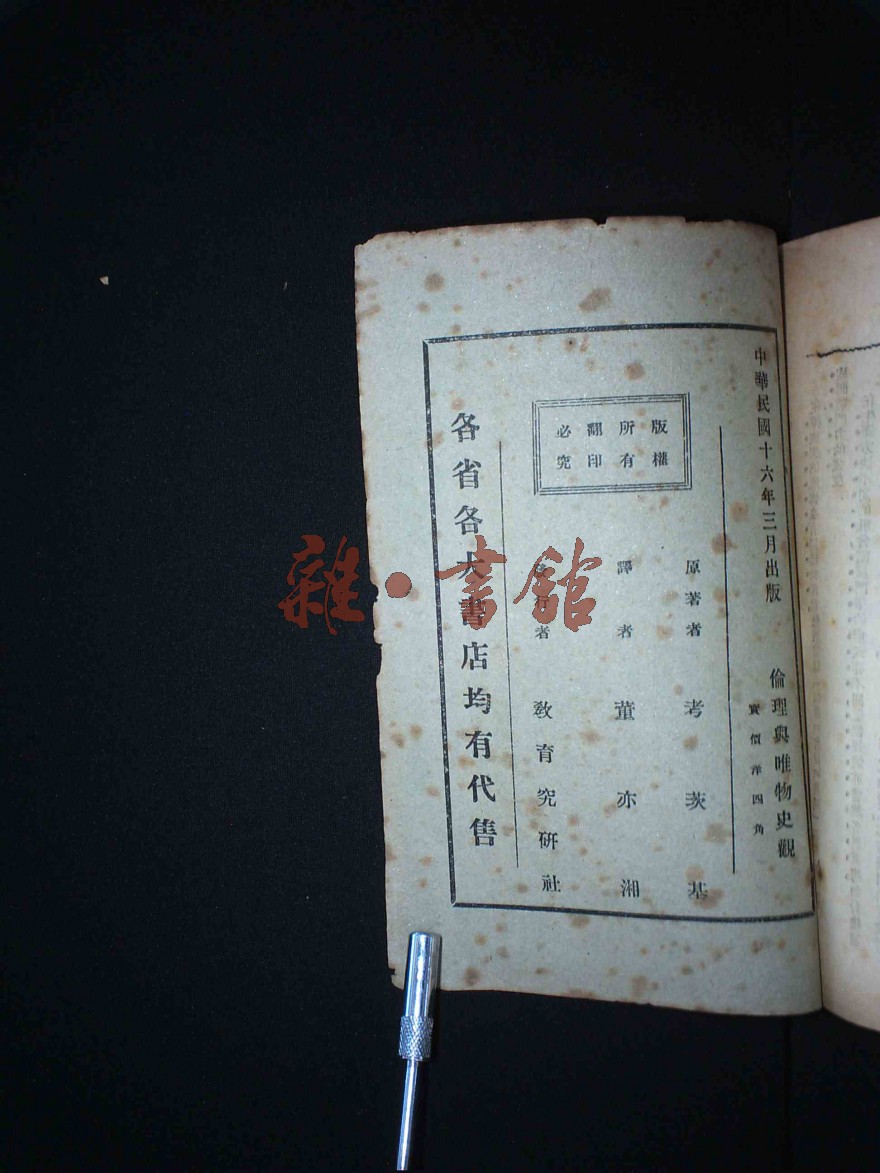 中華民國十六年三月出版
倫理與唯物史觀
實價洋四角
版權所有翻印必究
原著者 考茨基
譯者 董亦湘
發行者 教育究研社
各省各大書店均有代售
雜·書館